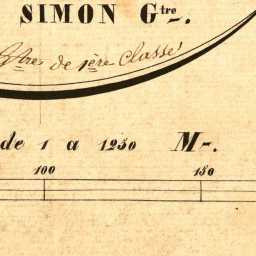 SIMON Gtre.
Gtres de 1ère Classe
de 1 a 1250 M.
100 150